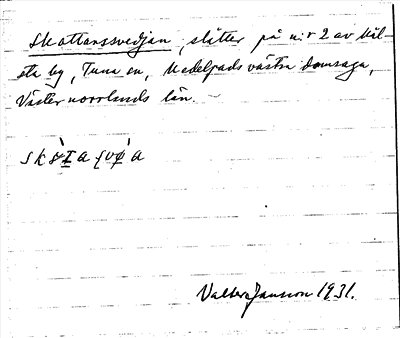 Skottanssvedjan, slåtter på n:r 2 av Väl-
sta by, Tuna sn, Medelpads västra domsaga,
Västernorrlands län. –
Valter Jansson 1931.